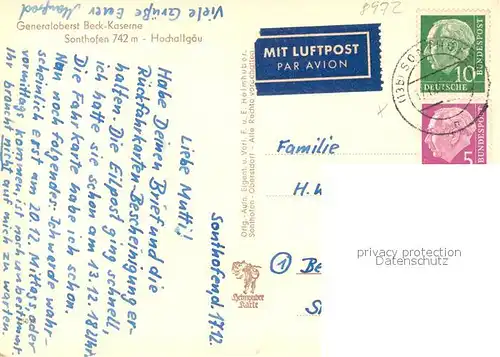 Viele Grüße Euer Manfred
Generaloberst Beck-Kaserne
Sonthofen 742 m - Hochallgäu
8972
MIT LUFTPOST
PAR AVION
10
DEUTSCHE
BUNDESPOST
5
BUNDESPOST
Sonthofen, d. 17.12.
Liebe Mutti!
Habe Deinen Brief und die
Rückfahrkarten-Bescheinigung er-
halten. Die Eilpost ging schnell,
ich hatte sie schon am 13.12. 18 Uhr.
Die Fahrkarte habe ich schon.
Nun noch Folgendes: Ich werde wahr-
scheinlich erst am 20.12. Mittags, oder
vormittags kommen, ist noch unbestimmt.
Ihr braucht nicht auf mich zu warten.
Orig.-Aufn. Eigent. u. Verl. F. u. E. Heimhuber,
Sonthofen-Oberstdorf - Alle Rechte vorbehalten
Heimhuber
Karte
Familie
H. W
1 Be
S
privacy protection
Datenschutz